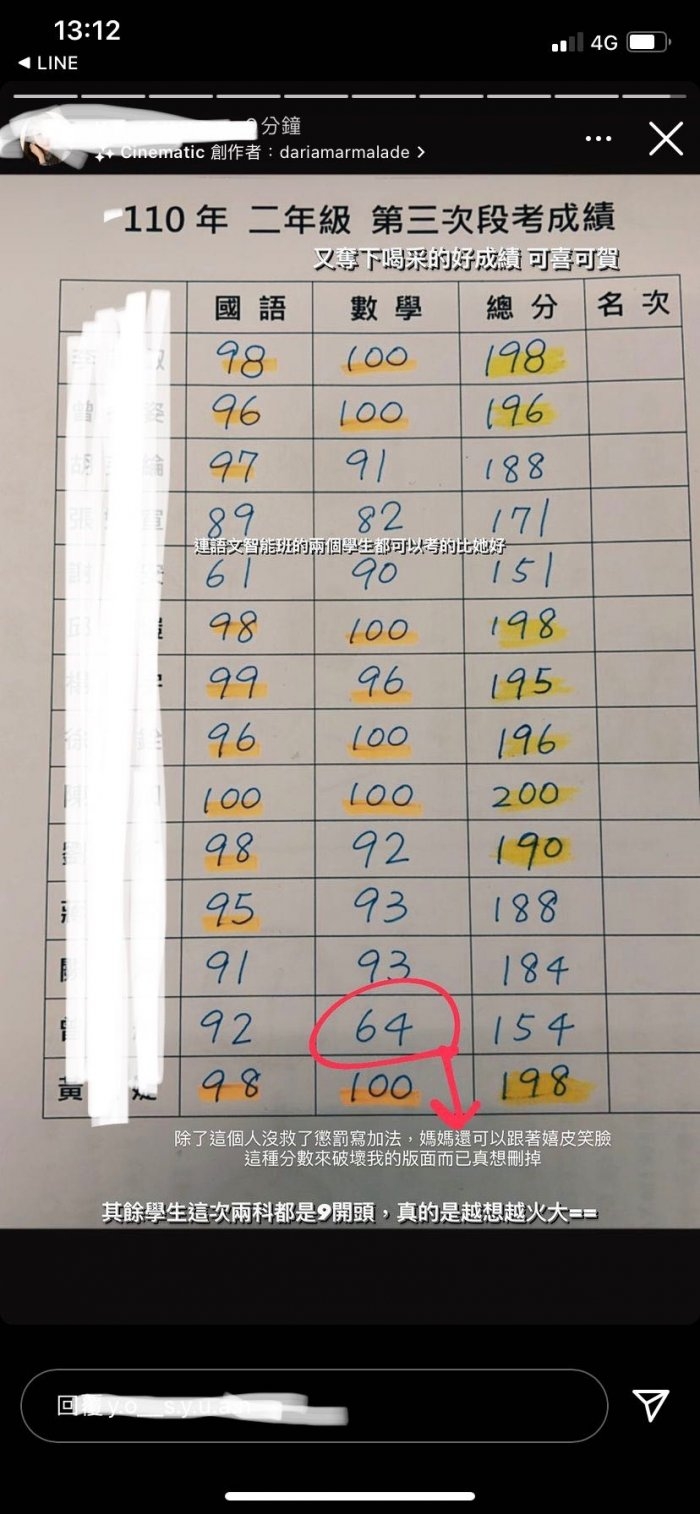 13:12
4G
◀ LINE
分鐘
Cinematic 創作者：dariamarmalade >
110年 二年級 第三次段考成績
又奪下喝采的好成績 可喜可賀
國語 數學 總分 名次
98 100 198
96 100 196
97 91 188
89 82 171
連語文智能班的兩個學生都可以考的比她好
61 90 151
98 100 198
99 96 195
96 100 196
100 100 200
98 92 190
95 93 188
91 93 184
92 64 154
黃 98 100 198
除了這個人沒救了懲罰寫加法，媽媽還可以跟著嬉皮笑臉
這種分數來破壞我的版面而已真想刪掉
其餘學生這次兩科都是9開頭，真的是越想越火大==
回覆